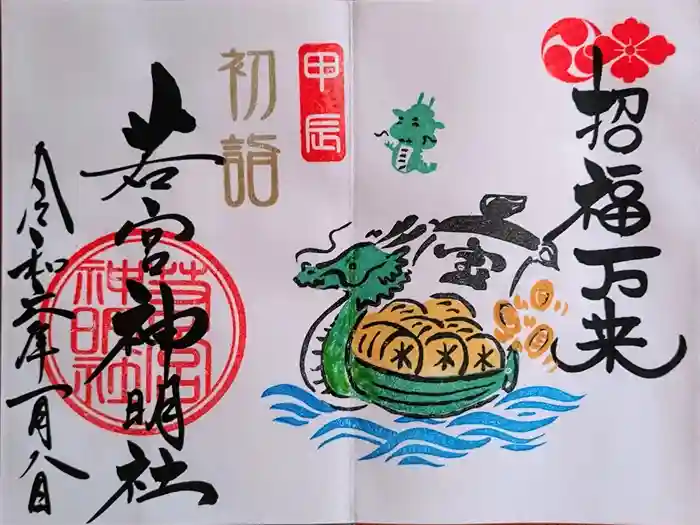 招福万来
宝
甲辰
初詣
若宮神明社
若宮神明社
令和六年一月八日